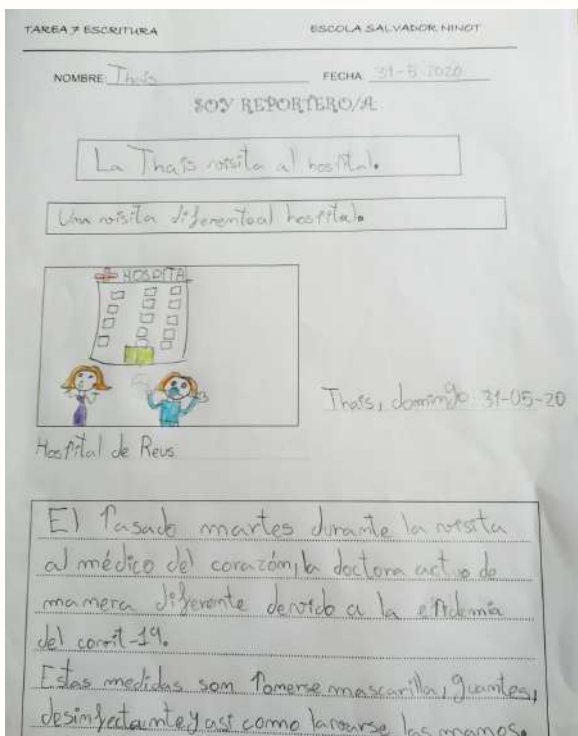 TAREA 7 ESCRITURA ESCOLA SALVADOR NINOT
NOMBRE Thais FECHA 31-5-2020
SOY REPORTERO/A
La Thais visita al hospital.
Una visita diferente al hospital.
HOSPITAL
Thais, domingo 31-05-20
Hospital de Reus
El Pasado martes durante la visita
al médico del corazón, la doctora actuo de
manera diferente devido a la epidemia
del covit-19.
Estas medidas som Ponerse mascarilla, guantes,
desinfectante y así como lavarse las manos.